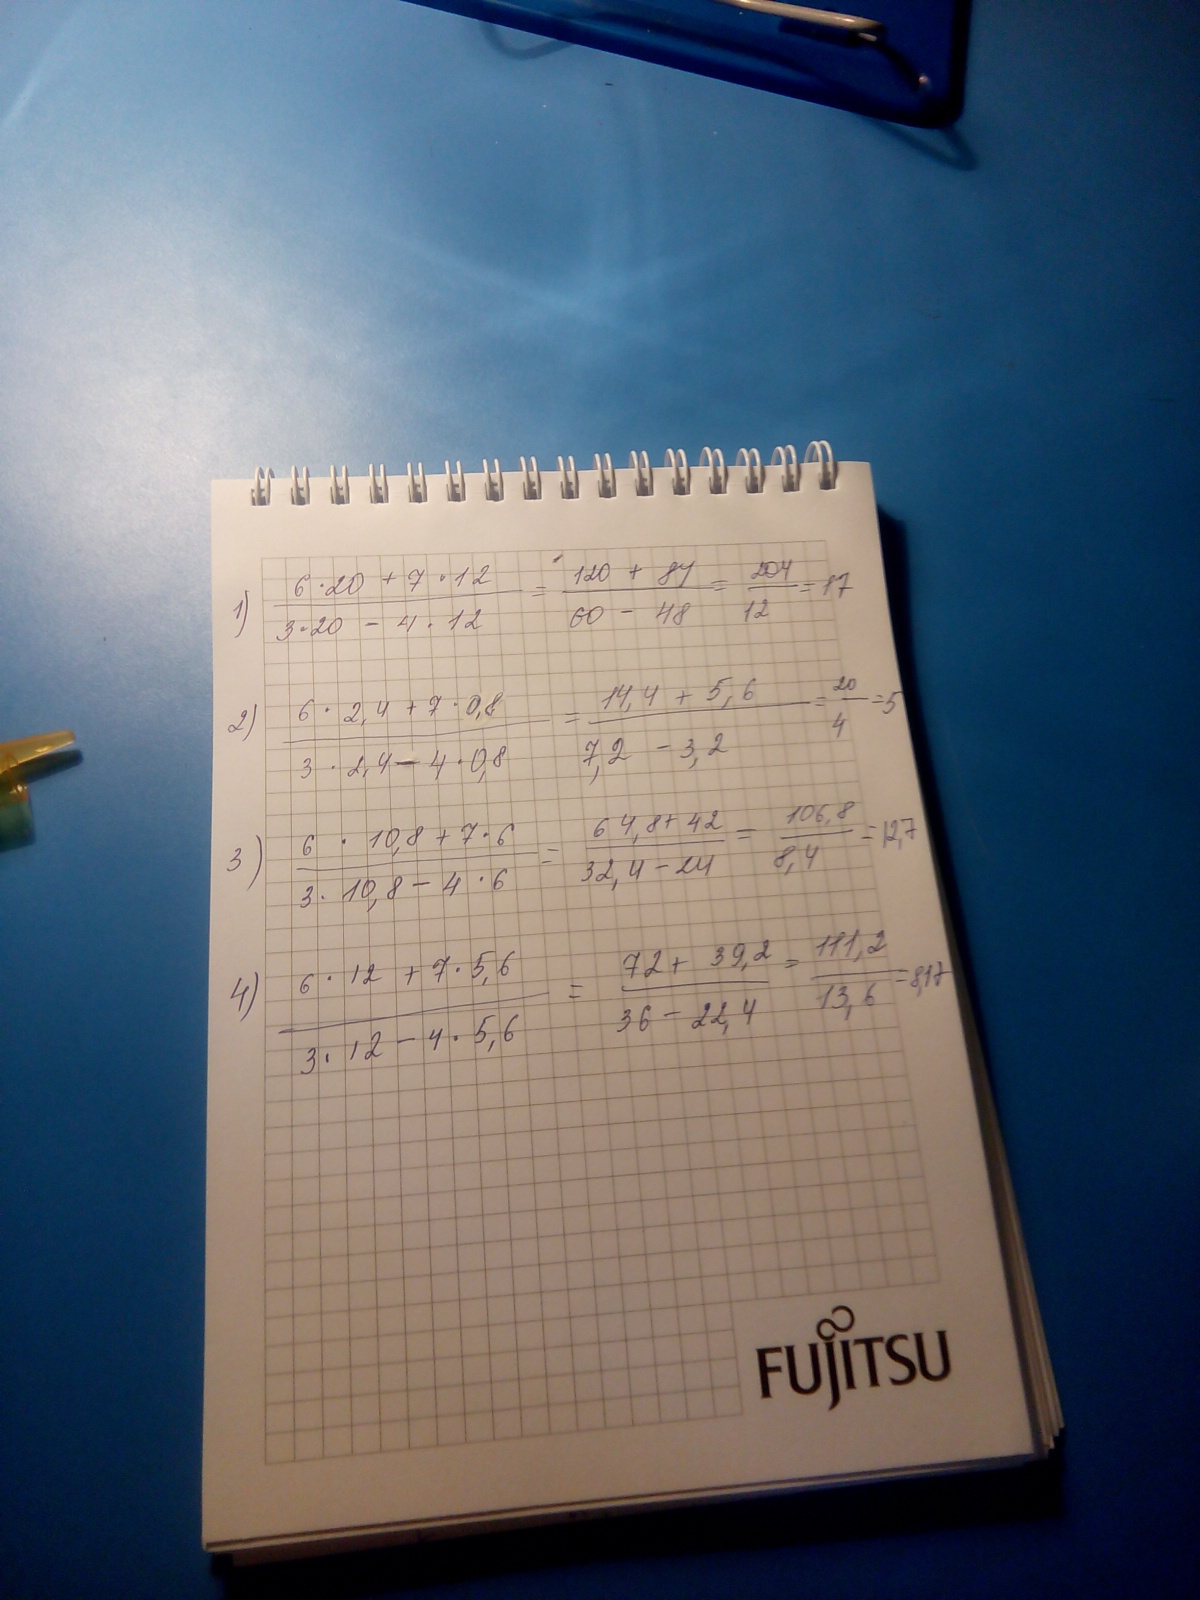 1) (6·20 + 7·12)/(3·20 - 4·12) = (120 + 84)/(60 - 48) = 204/12 = 17
2) (6·2,4 + 7·0,8)/(3·2,4 - 4·0,8) = (14,4 + 5,6)/(7,2 - 3,2) = 20/4 = 5
3) (6·10,8 + 7·6)/(3·10,8 - 4·6) = (64,8 + 42)/(32,4 - 24) = 106,8/8,4 = 12,7
4) (6·12 + 7·5,6)/(3·12 - 4·5,6) = (72 + 39,2)/(36 - 22,4) = 111,2/13,6 = 8,17
FUJITSU